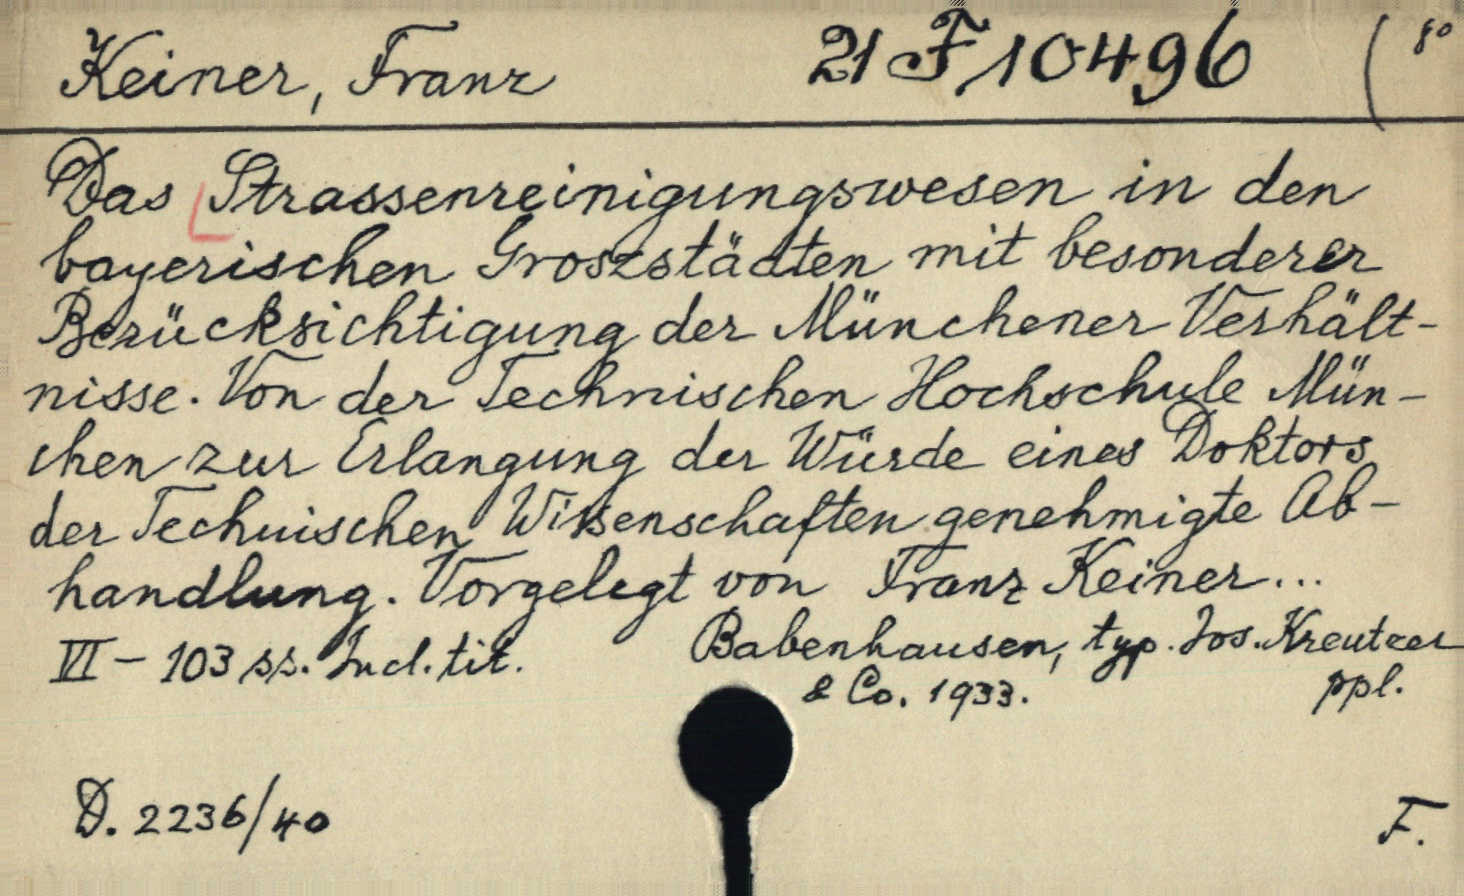 Keiner, Franz 21 F 10496 (8°
Das Strassenreinigungswesen in den
bayerischen Groszstädten mit besonderer
Berücksichtigung der Münchener Verhält-
nisse. Von der Technischen Hochschule Mün-
chen zur Erlangung der Würde eines Doktors
der Technischen Wissenschaften genehmigte Ab-
handlung. Vorgelegt von Franz Keiner...
VI - 103 ss. Incl. tit. Babenhausen, typ. Jos. Kreutzer
& Co. 1933. ppl.
D. 2236/40 F.